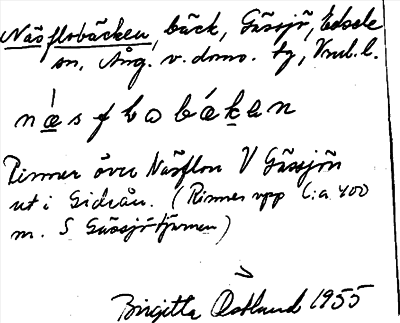 Näsflobäcken, bäck, Gässjö, Edsele
sn, Ång. v. doms. tg, Vnrl. l.
næsflobækan
Rinner över Näsflon V Gässjön
ut i Gideån. (Rinner upp C:a 400
m. S Gässjötjärnen)
Birgitta Östlund 1955